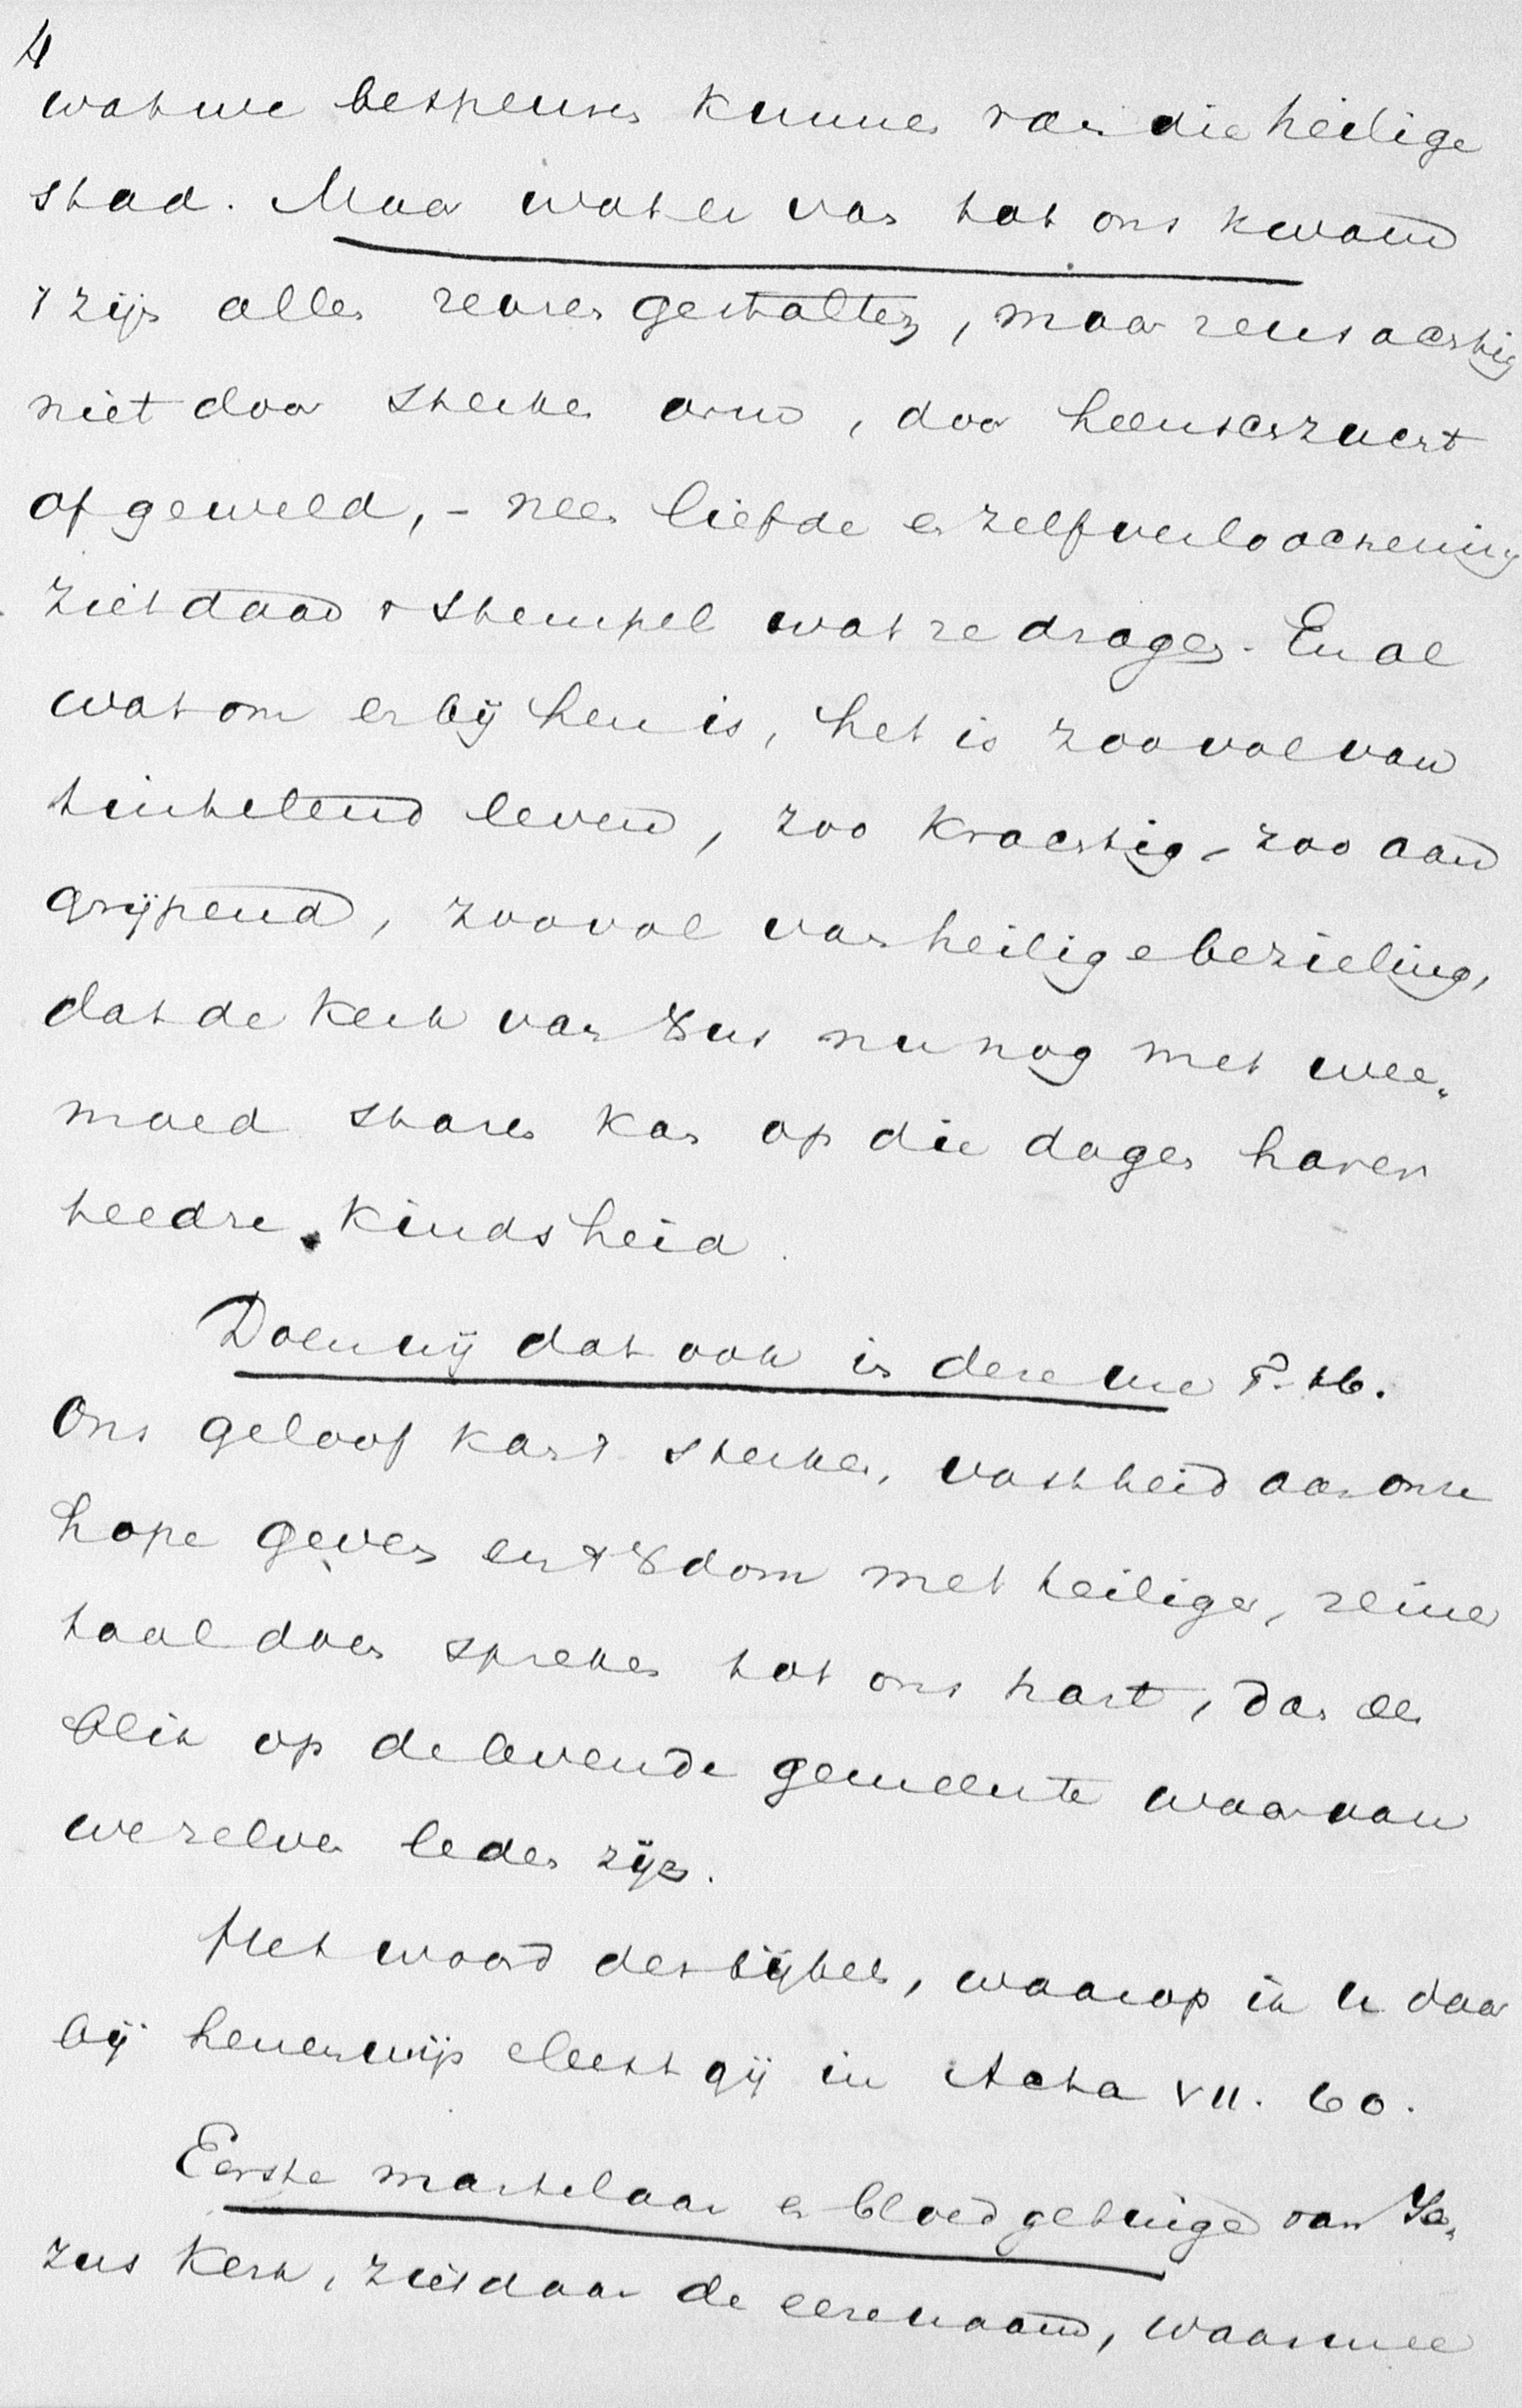 4
wat we bespeuren kunnen van die heilige
stad. Maar wat er van tot ons kwam
't zijn alles reuzengestalten, maar reusachtig
niet door sterken arm, door heerserzucht
of geweld, - neen liefde en zelfverloochening
ziet daar 't stempel wat ze dragen. En al
wat om en bij hen is, het is zoo vol van
tintelend leven, zoo krachtig - zoo aan
grijpend, zoo vol van heilige bezieling,
dat de kerk van Xus nu nog met wee„
moed staren kan op die dagen harer
teedre kindsheid.
Doen wij dat ook in deze ure
Ons geloof kan 't sterken, vastheid aan onze
hope geven en 't Xdom met heilige, reine
taal doen spreken tot ons hart, dan de
blik op de levende gemeente waarvan
we zelven leden zijn.
Het woord des bijbels, waarop ik u daar
bij henenwijs leest gij in Acta VII. 60.
Eerste martelaar en bloedgetuige van Je„
zus kerk, ziet daar de eerenaam, waarmee